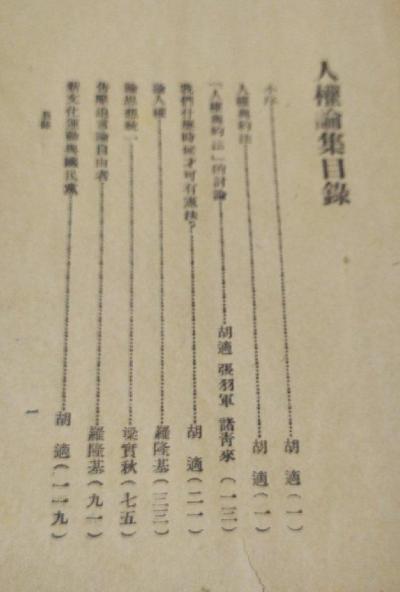 人權論集目錄
小序 胡適(一)
人權與約法 胡適(一)
「人權與約法」的討論 胡適 張羽軍 諸青來(一三)
我們什麼時候才可有憲法? 胡適(二一)
論人權 羅隆基(三三)
論思想統一 梁實秋(七五)
告壓迫言論自由者 羅隆基(九一)
新文化運動與國民黨 胡適(一一九)
目錄
一